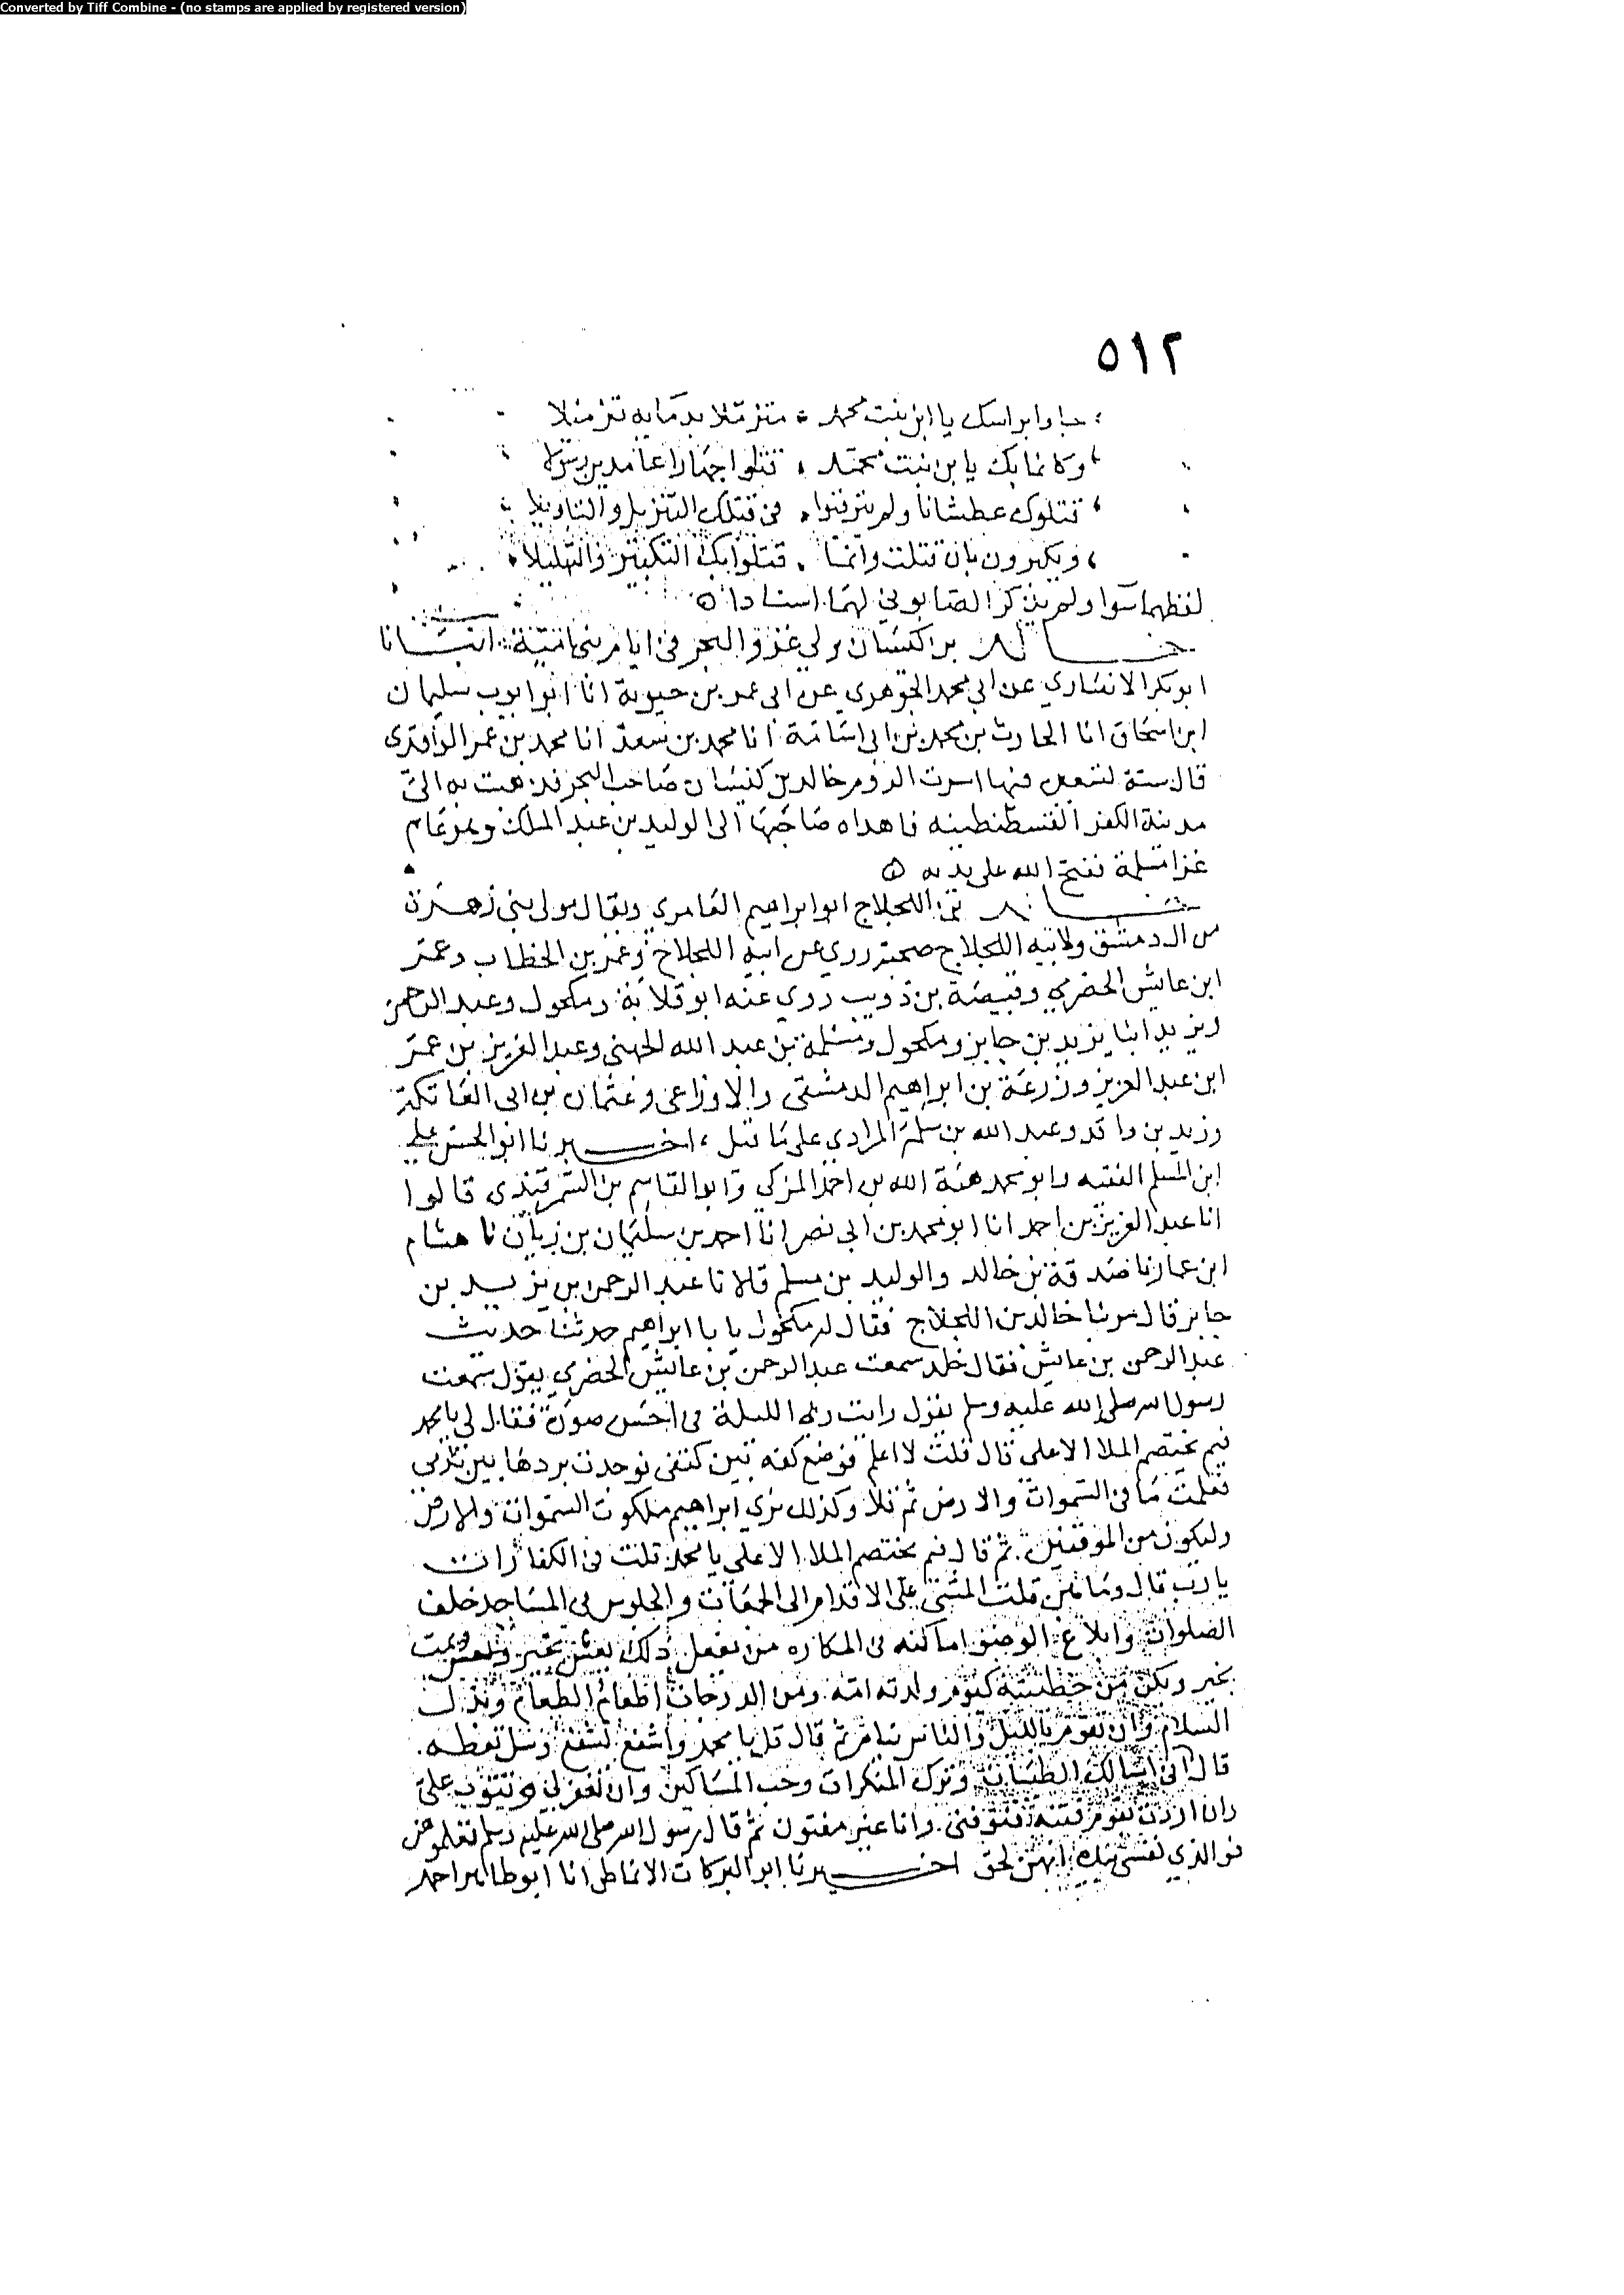 Converted by Tiff Combine - (no stamps are applied by registered version)
٥١٢
جاوا براسك يا ابن بنت محمد * متزملا بدمايه تزميلا
وكانما بك يا بن بنت محمد ، قتلوا جهارا عامدين رسولا
قتلوك عطشانا ولم يترقبوا ، في قتلك التنزيل والتاويلا
ويكبرون بان قتلت وانما ، قتلوا بك التكبير والتهليلا
لفظهما سوا ولم يذكر الصابوني لهما اسنادا ٥
خالد بن كيسان ولي غزو البحر في ايام بني امية انبانا
ابو بكر الانصاري عن ابي محمد الجوهري عن ابي عمر بن حيوية انا ابو ايوب سليمان
ابن اسحاق انا الحارث بن محمد بن ابي اسامة انا محمد بن سعد انا محمد بن عمر الواقدي
قال سنة تسعين فيها اسرت الروم خالد بن كيسان صاحب البحر فذهبت به الى
مدينة الكفر القسطنطينيه فاهداه صاحبها الى الوليد بن عبد الملك وهو عام
غزا مسلمة ففتح الله على يديه ٥
خالد بن اللجلاج ابو ابراهيم العامري ويقال مولى بني زهرة
من اهل دمشق ولابيه اللجلاج صحبة روي عن ابيه اللجلاج وعمر بن الخطاب وعمر
ابن عايش الحضرمي وقبيصة بن ذويب روي عنه ابو قلابة ومكحول وعبد الرحمن
ويزيد ابنا يزيد بن جابر ومكحول ومسلمة بن عبد الله الجهني وعبد العزيز بن عمر
ابن عبد العزيز وزرعة بن ابراهيم الدمشقي والاوزاعي وعثمان بن ابي العاتكة
وزيد بن واقد وعبد الله بن سلمة المرادي على ما قيل ، اخبرنا ابو الحسن علي
ابن المسلم الفقيه وابو محمد هبة الله بن احمد المزكي وابو القاسم بن السمرقندي قالوا
انا عبد العزيز بن احمد انا ابو محمد بن ابي نصر انا احمد بن سليمان بن زبان نا هشام
ابن عمار نا صدقة بن خالد والوليد بن مسلم قالا نا عبد الرحمن بن يزيد بن
جابر قال مر بنا خالد بن اللجلاج فقال له مكحول يا با ابراهيم حدثنا حديث
عبد الرحمن بن عايش فقال خلد سمعت عبد الرحمن بن عايش الحضرمي يقول سمعت
رسول الله صلى الله عليه وسلم يقول رايت ربي الليلة في احسن صورة فقال لي يا محمد
فيم يختصم الملا الاعلى قال قلت لا اعلم فوضع كفه بين كتفي فوجدت بردها بين ثديي
فعلمت ما في السموات والارض ثم تلا وكذلك نري ابراهيم ملكوت السموات والارض
وليكون من الموقنين ثم قال فيم يختصم الملا الاعلى يا محمد قلت في الكفارات
يا رب قال وما هن قلت المشي على الاقدام الى الجمعات والجلوس في المساجد خلف
الصلوات وابلاغ الوضو اماكنه في المكاره من يفعل ذلك يعش بخير ويمت
بخير ويكن من خطيئته كيوم ولدته امه ومن الدرجات اطعام الطعام وبذل
السلام وان تقوم بالليل والناس نيام ثم قال قل يا محمد واشفع تشفع وسل تعطه
قال اني اسالك الطيبات وترك المنكرات وحب المساكين وان تغفر لي وتتوب علي
وان اردت بقوم فتنة فتوفني وانا غير مفتون ثم قال رسول الله صلى الله عليه وسلم تعلموهن
فوالذي نفسي بيده انهن لحق اخبرنا ابو البركات الانماطي انا ابو طاهر احمد